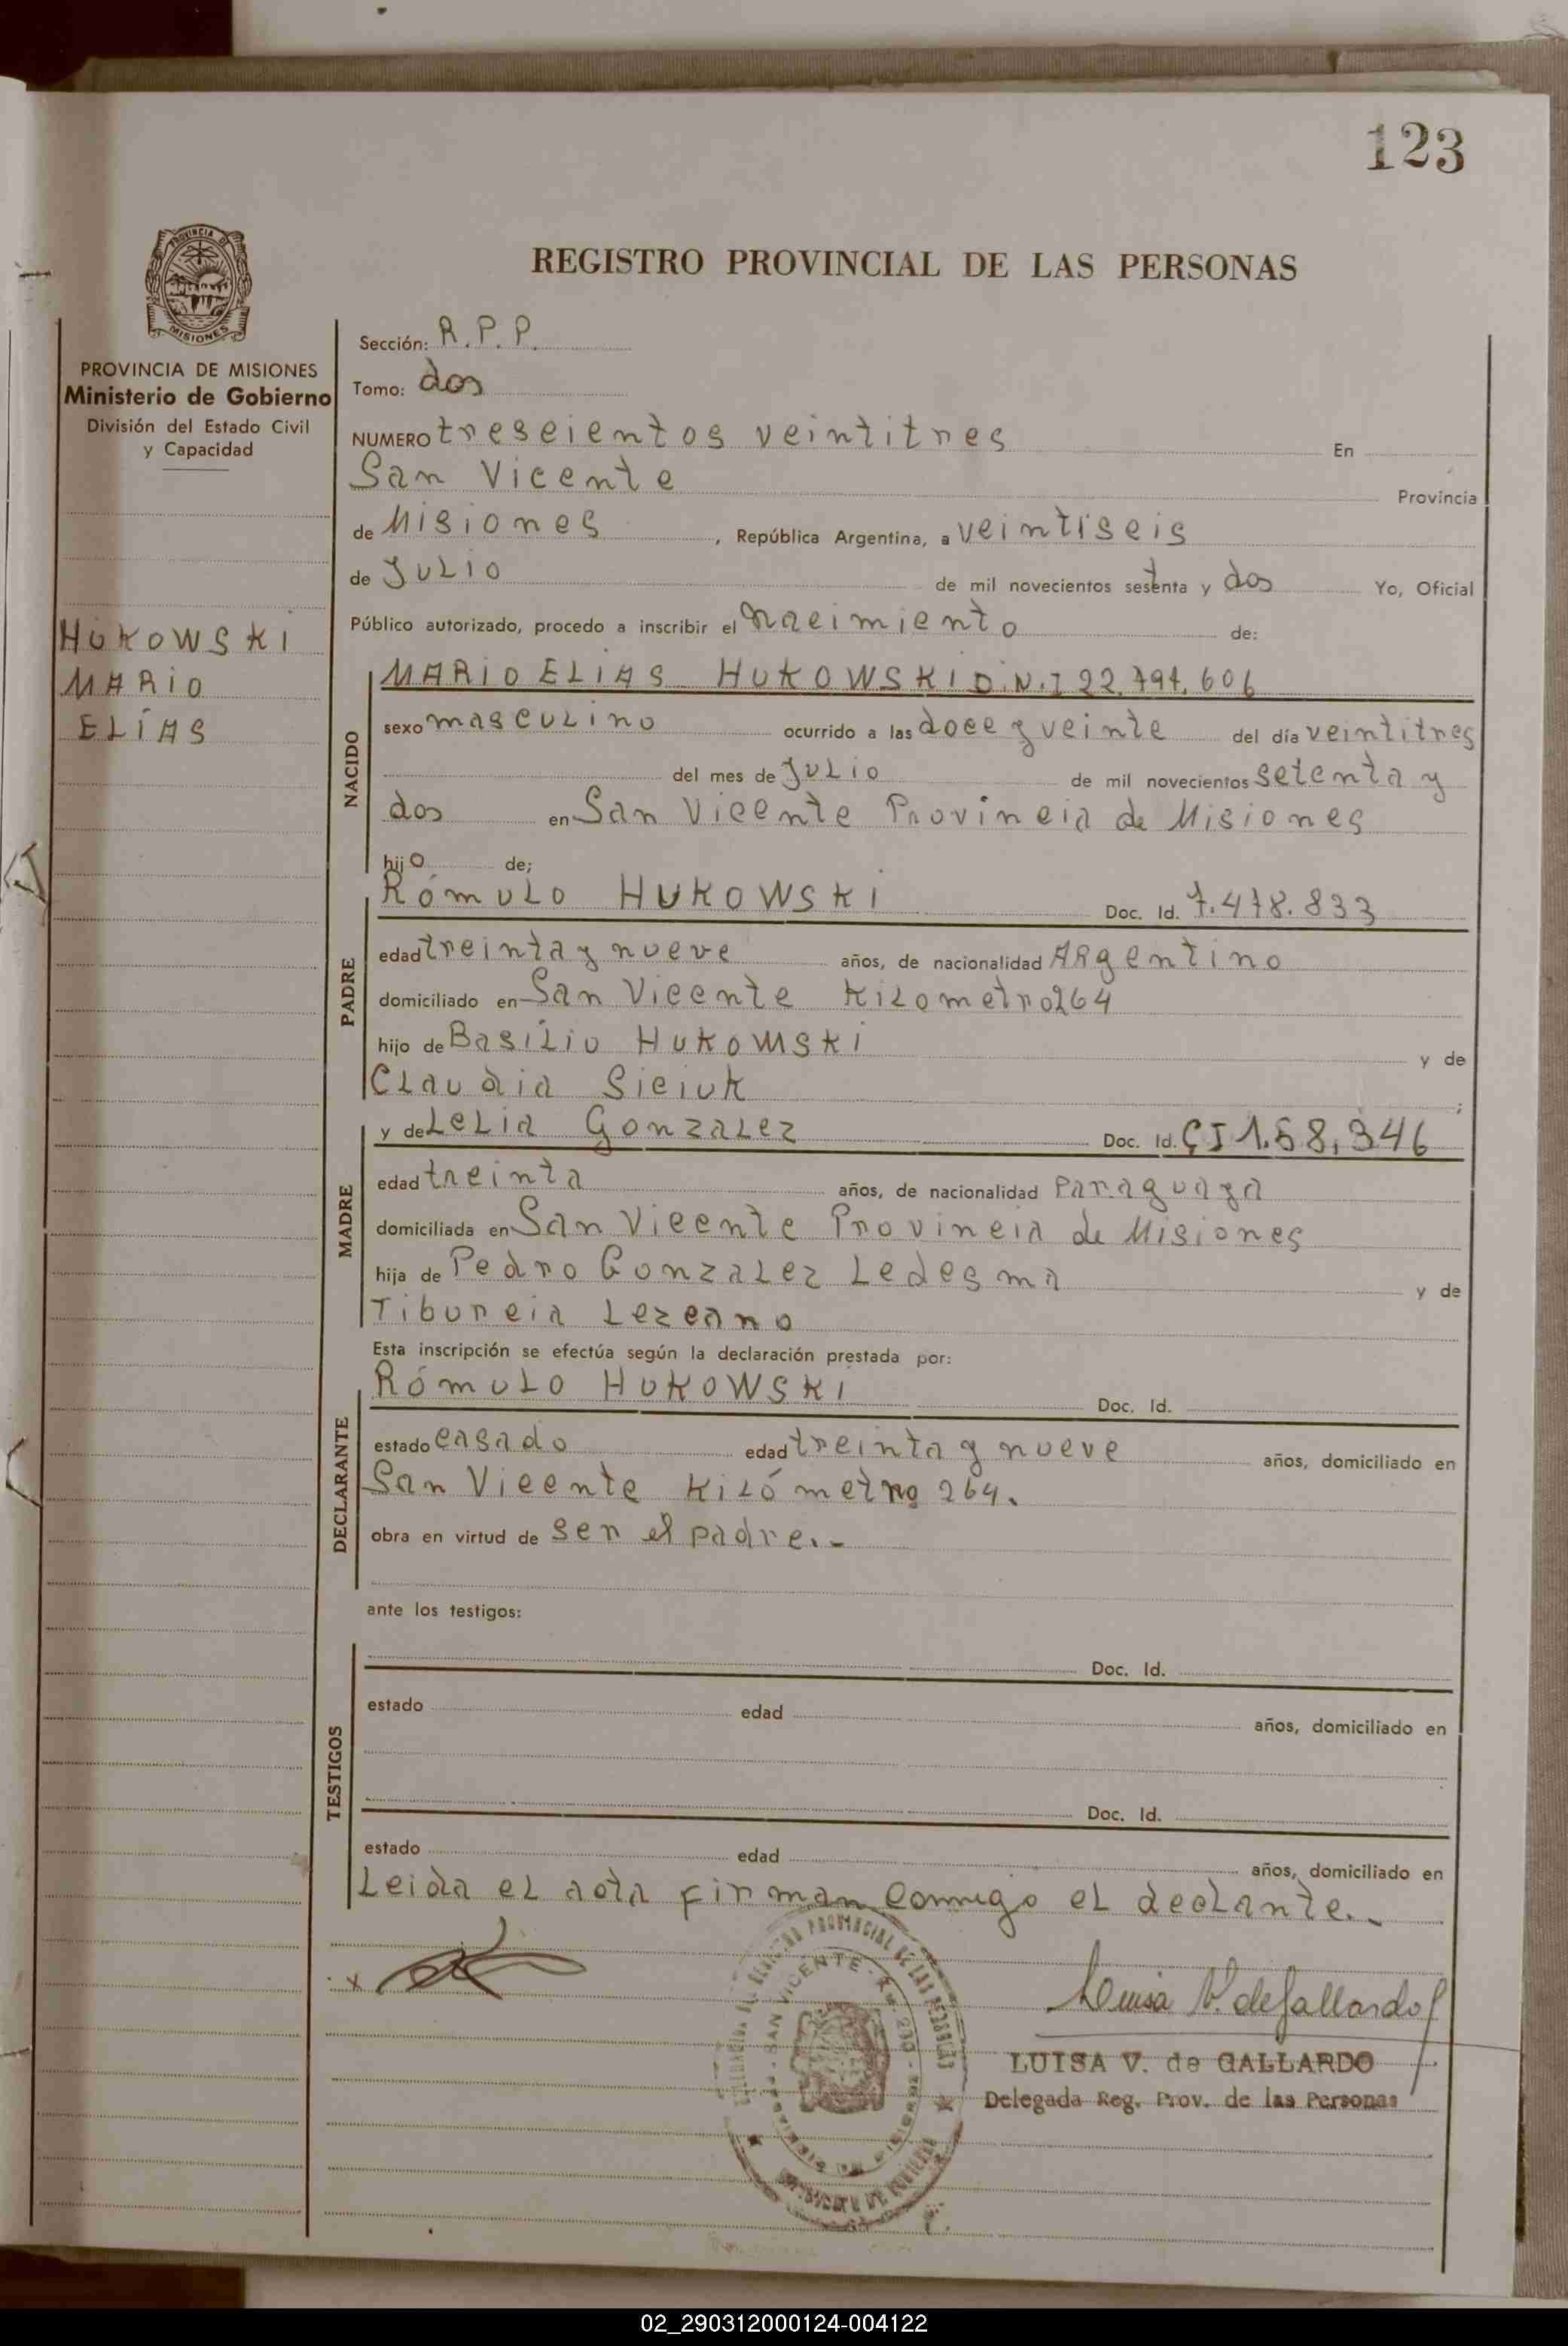 123
PROVINCIA DE
MISIONES
REGISTRO PROVINCIAL DE LAS PERSONAS
PROVINCIA DE MISIONES
Ministerio de Gobierno
División del Estado Civil
y Capacidad
HUKOWSKI
MARIO
ELÍAS
Sección: R.P.P.
Tomo: dos
NUMERO trescientos veintitres En
San Vicente Provincia
de Misiones , República Argentina, a veintiseis
de Julio de mil novecientos setenta y dos Yo, Oficial
Público autorizado, procedo a inscribir el nacimiento de:
NACIDO
MARIO ELIAS HUKOWSKI D.N.I 22.794.606
sexo masculino ocurrido a las doce y veinte del día veintitres
del mes de Julio de mil novecientos setenta y
dos en San Vicente Provincia de Misiones
hijo de;
PADRE
Rómulo HUKOWSKI Doc. Id. 7.478.833
edad treinta y nueve años, de nacionalidad Argentino
domiciliado en San Vicente Kilometro 264
hijo de Basílio Hukowski y de
Claudia Siciuk ;
MADRE
y de Lelia Gonzalez Doc. Id. CI 1.58,346
edad treinta años, de nacionalidad Paraguaya
domiciliada en San Vicente Provincia de Misiones
hija de Pedro Gonzalez Ledesma y de
Tiburcia Lezcano
Esta inscripción se efectúa según la declaración prestada por:
DECLARANTE
Rómulo HUKOWSKI Doc. Id.
estado casado edad treinta y nueve años, domiciliado en
San Vicente Kilómetro 264.
obra en virtud de ser el padre.-
ante los testigos:
TESTIGOS
Doc. Id.
estado edad años, domiciliado en
Doc. Id.
estado edad años, domiciliado en
Leida el acta firman conmigo el declante.-
x
PROVINCIAL DE LAS PERSONAS
SAN VICENTE
Luisa V. de Gallardo
LUISA V. de GALLARDO
Delegada Reg. Prov. de las Personas
02_290312000124-004122